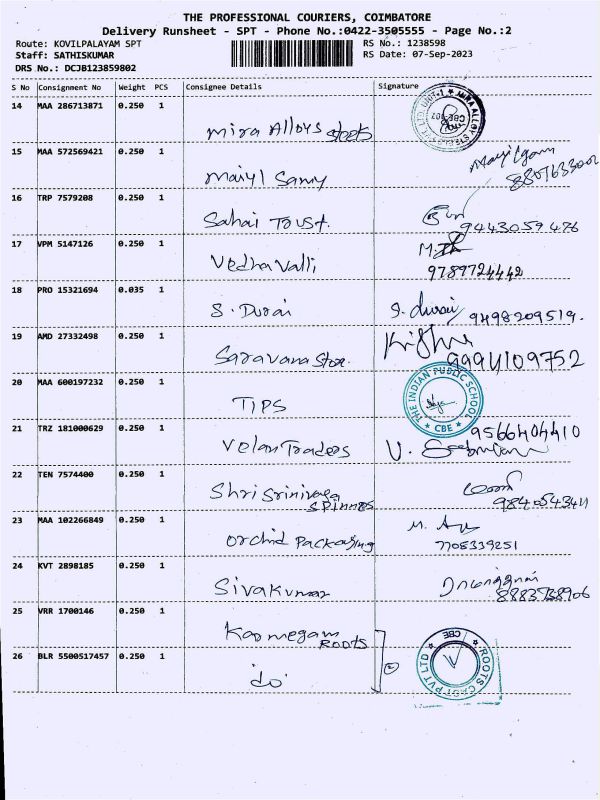 THE PROFESSIONAL COURIERS, COIMBATORE
Delivery Runsheet - SPT - Phone No.:0422-3505555 - Page No.:2
Route: KOVILPALAYAM SPT
RS No.: 1238598
Staff: SATHISKUMAR
RS Date: 07-Sep-2023
DRS No.: DCJB123859802
S No Consignment No Weight PCS Consignee Details Signature
14 MAA 286713871 0.250 1
Mira Alloys steels
15 MAA 572569421 0.250 1
Maiyl Samy
16 TRP 7579208 0.250 1
Sahai Trust.
9443059476
17 VPM 5147126 0.250 1
Vedha Valli
9789724442
18 PRO 15321694 0.035 1
S. Durai S. durai 9498209519.
19 AMD 27332498 0.250 1
Saravana Stor. 9994109752
20 MAA 600197232 0.250 1
TIPS
THE INDIAN PUBLIC SCHOOL
★ CBE ★
21 TRZ 181000629 0.250 1
9566404410
Velan Traders
22 TEN 7574400 0.250 1
Shri Srinivasa
Spinners
23 MAA 102266849 0.250 1
Orchid Packaging 7708339251
24 KVT 2898185 0.250 1
Sivakumar
8883738906
25 VRR 1700146 0.250 1
Kaomegam
ROOTS
ROOTS CAST PVT LTD ★ CBE
26 BLR 5500517457 0.250 1
do